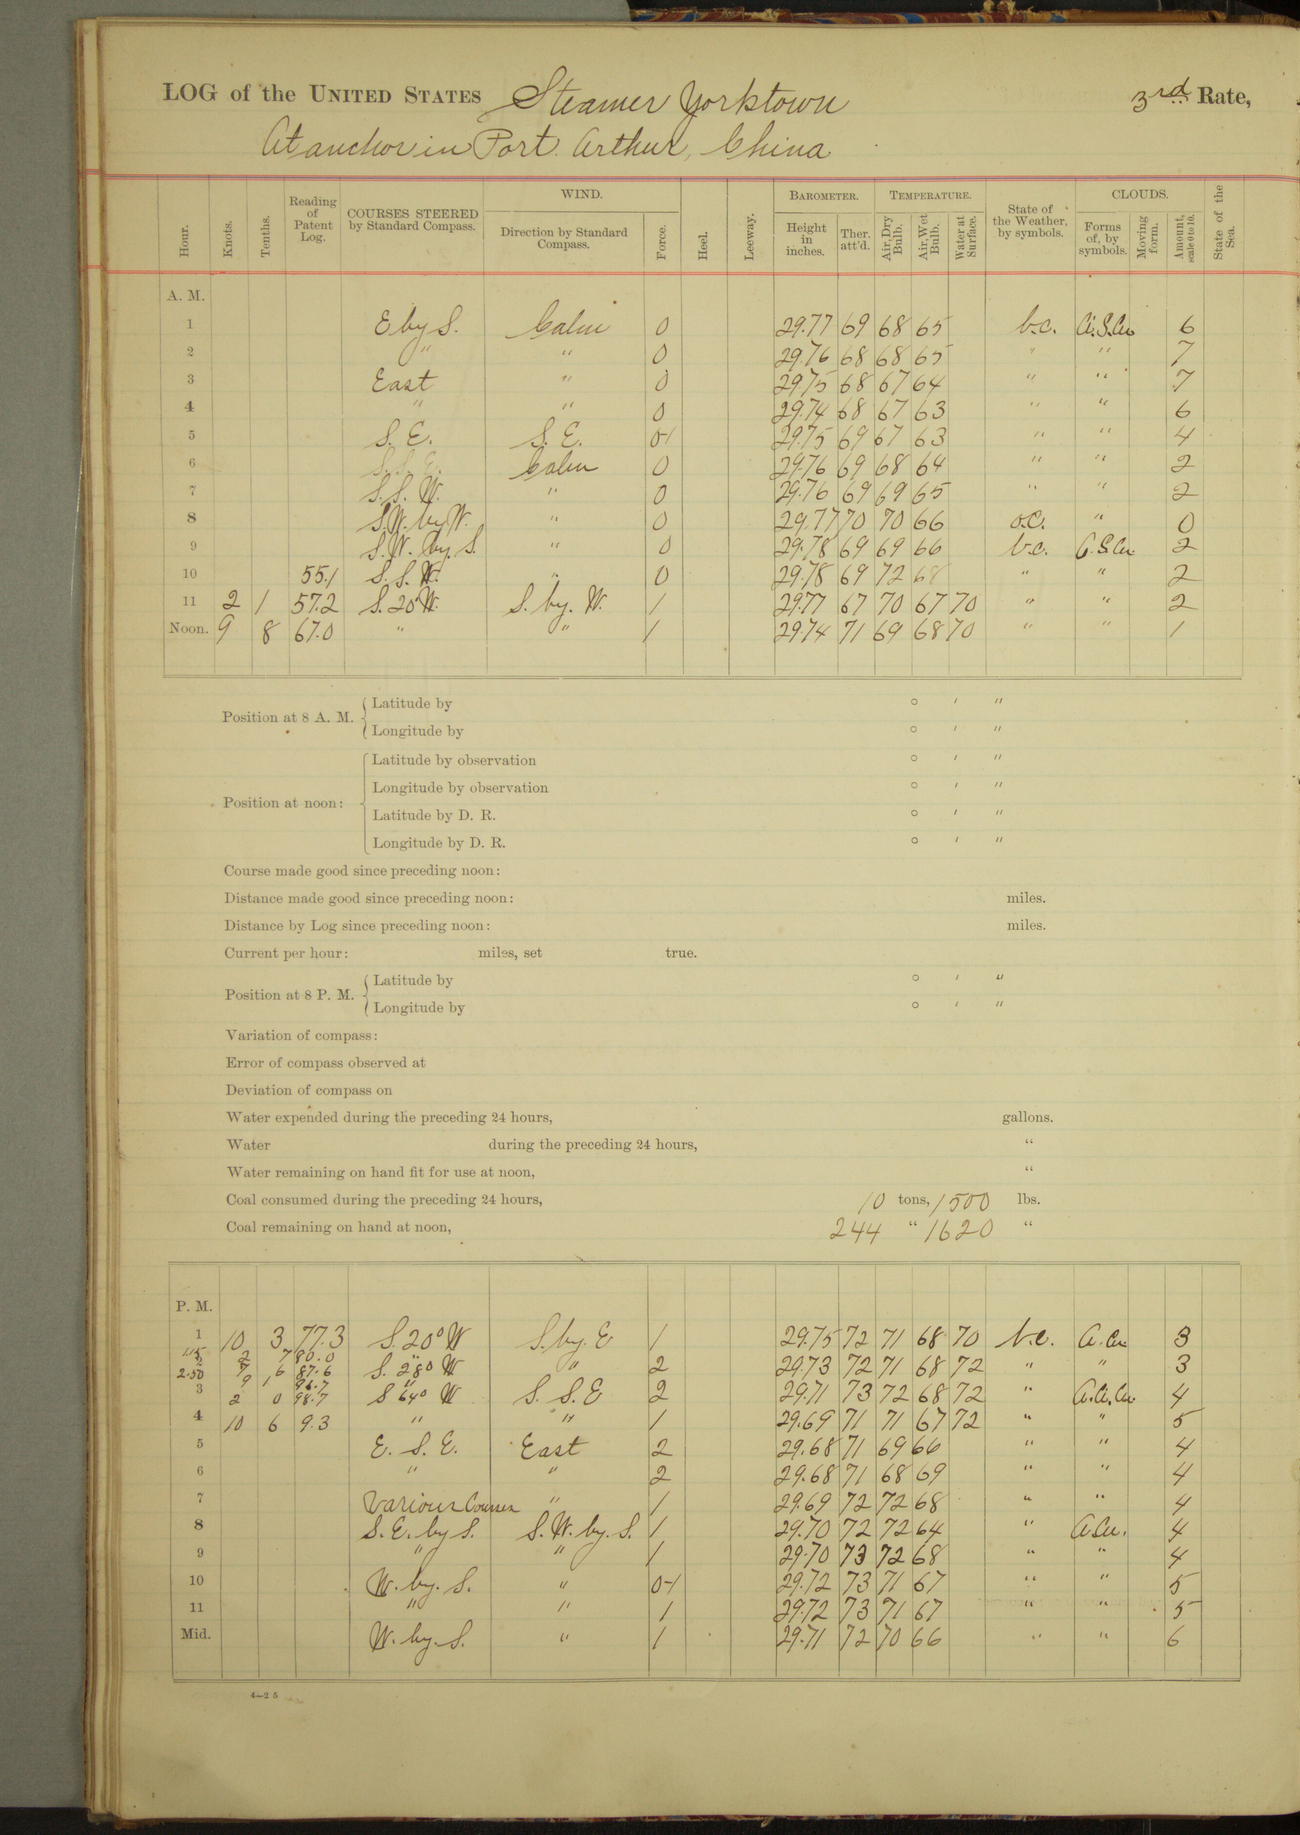 LOG of the UNITED STATES Steamer Yorktown 3rd Rate,
At anchor in Port Arthur, China
Hour. Knots. Tenths. Reading of Patent Log. COURSES STEERED by Standard Compass. WIND. Direction by Standard Compass. Force. Heel. Leeway. BAROMETER. Height in inches. Ther. att'd. TEMPERATURE. Air, Dry Bulb. Air, Wet Bulb. Water at Surface. State of the Weather, by symbols. CLOUDS. Forms of, by symbols. Moving form. Amount, scale 0 to 10. State of the Sea.
A. M.
1 E by S. Calm 0 29.77 69 68 65 b.c. 6
2 " " 0 29.76 68 68 65 " " 7
3 East " 0 29.75 68 67 64 " " 7
4 " " 0 29.74 68 67 63 " " 6
5 S. E. S. E. 0-1 29.75 69 67 63 " " 4
6 S. S. E. Calm 0 29.76 69 68 64 " " 2
7 S. S. W. " 0 29.76 69 69 65 " " 2
8 S.W. by W. " 0 29.77 70 70 66 o.c. " 0
9 S.W. by. S. " 0 29.78 69 69 66 b.c. 2
10 55.1 S. S. W. " 0 29.78 69 72 68 " " 2
11 2 1 57.2 S. 20° W. S. by. W. 1 29.77 67 70 67 70 " " 2
Noon. 9 8 67.0 " " 1 29.74 71 69 68 70 " " 1
Position at 8 A. M. Latitude by ° ′ ″
Longitude by ° ′ ″
Position at noon: Latitude by observation ° ′ ″
Longitude by observation ° ′ ″
Latitude by D. R. ° ′ ″
Longitude by D. R. ° ′ ″
Course made good since preceding noon:
Distance made good since preceding noon: miles.
Distance by Log since preceding noon: miles.
Current per hour: miles, set true.
Position at 8 P. M. Latitude by ° ′ ″
Longitude by ° ′ ″
Variation of compass:
Error of compass observed at
Deviation of compass on
Water expended during the preceding 24 hours, gallons.
Water during the preceding 24 hours, "
Water remaining on hand fit for use at noon, "
Coal consumed during the preceding 24 hours, 10 tons, 1500 lbs.
Coal remaining on hand at noon, 244 " 1620 "
P. M.
1 10 3 77.3 S. 20° W S. by. E 1 29.75 72 71 68 70 b.c. A. Cu 3
1.15 2 7 80.0
2 7 6 87.6 S. 28° W " 2 29.73 72 71 68 72 " " 3
2.50 9 1 96.7 "
3 2 0 98.7 S 64° W S. S. E 2 29.71 73 72 68 72 " 4
4 10 6 9.3 " " 1 29.69 71 71 67 72 " " 5
5 E. S. E. East 2 29.68 71 69 66 " " 4
6 " " 2 29.68 71 68 69 " " 4
7 Various Courses " 1 29.69 72 72 68 " " 4
8 S. E. by S. S. W. by. S. 1 29.70 72 72 64 " A.Cu. 4
9 " " 1 29.70 73 72 68 " " 4
10 W. by. S. " 0-1 29.72 73 71 67 " " 5
11 " " 1 29.72 73 71 67 " " 5
Mid. W. by. S. " 1 29.71 72 70 66 " " 6
4—25